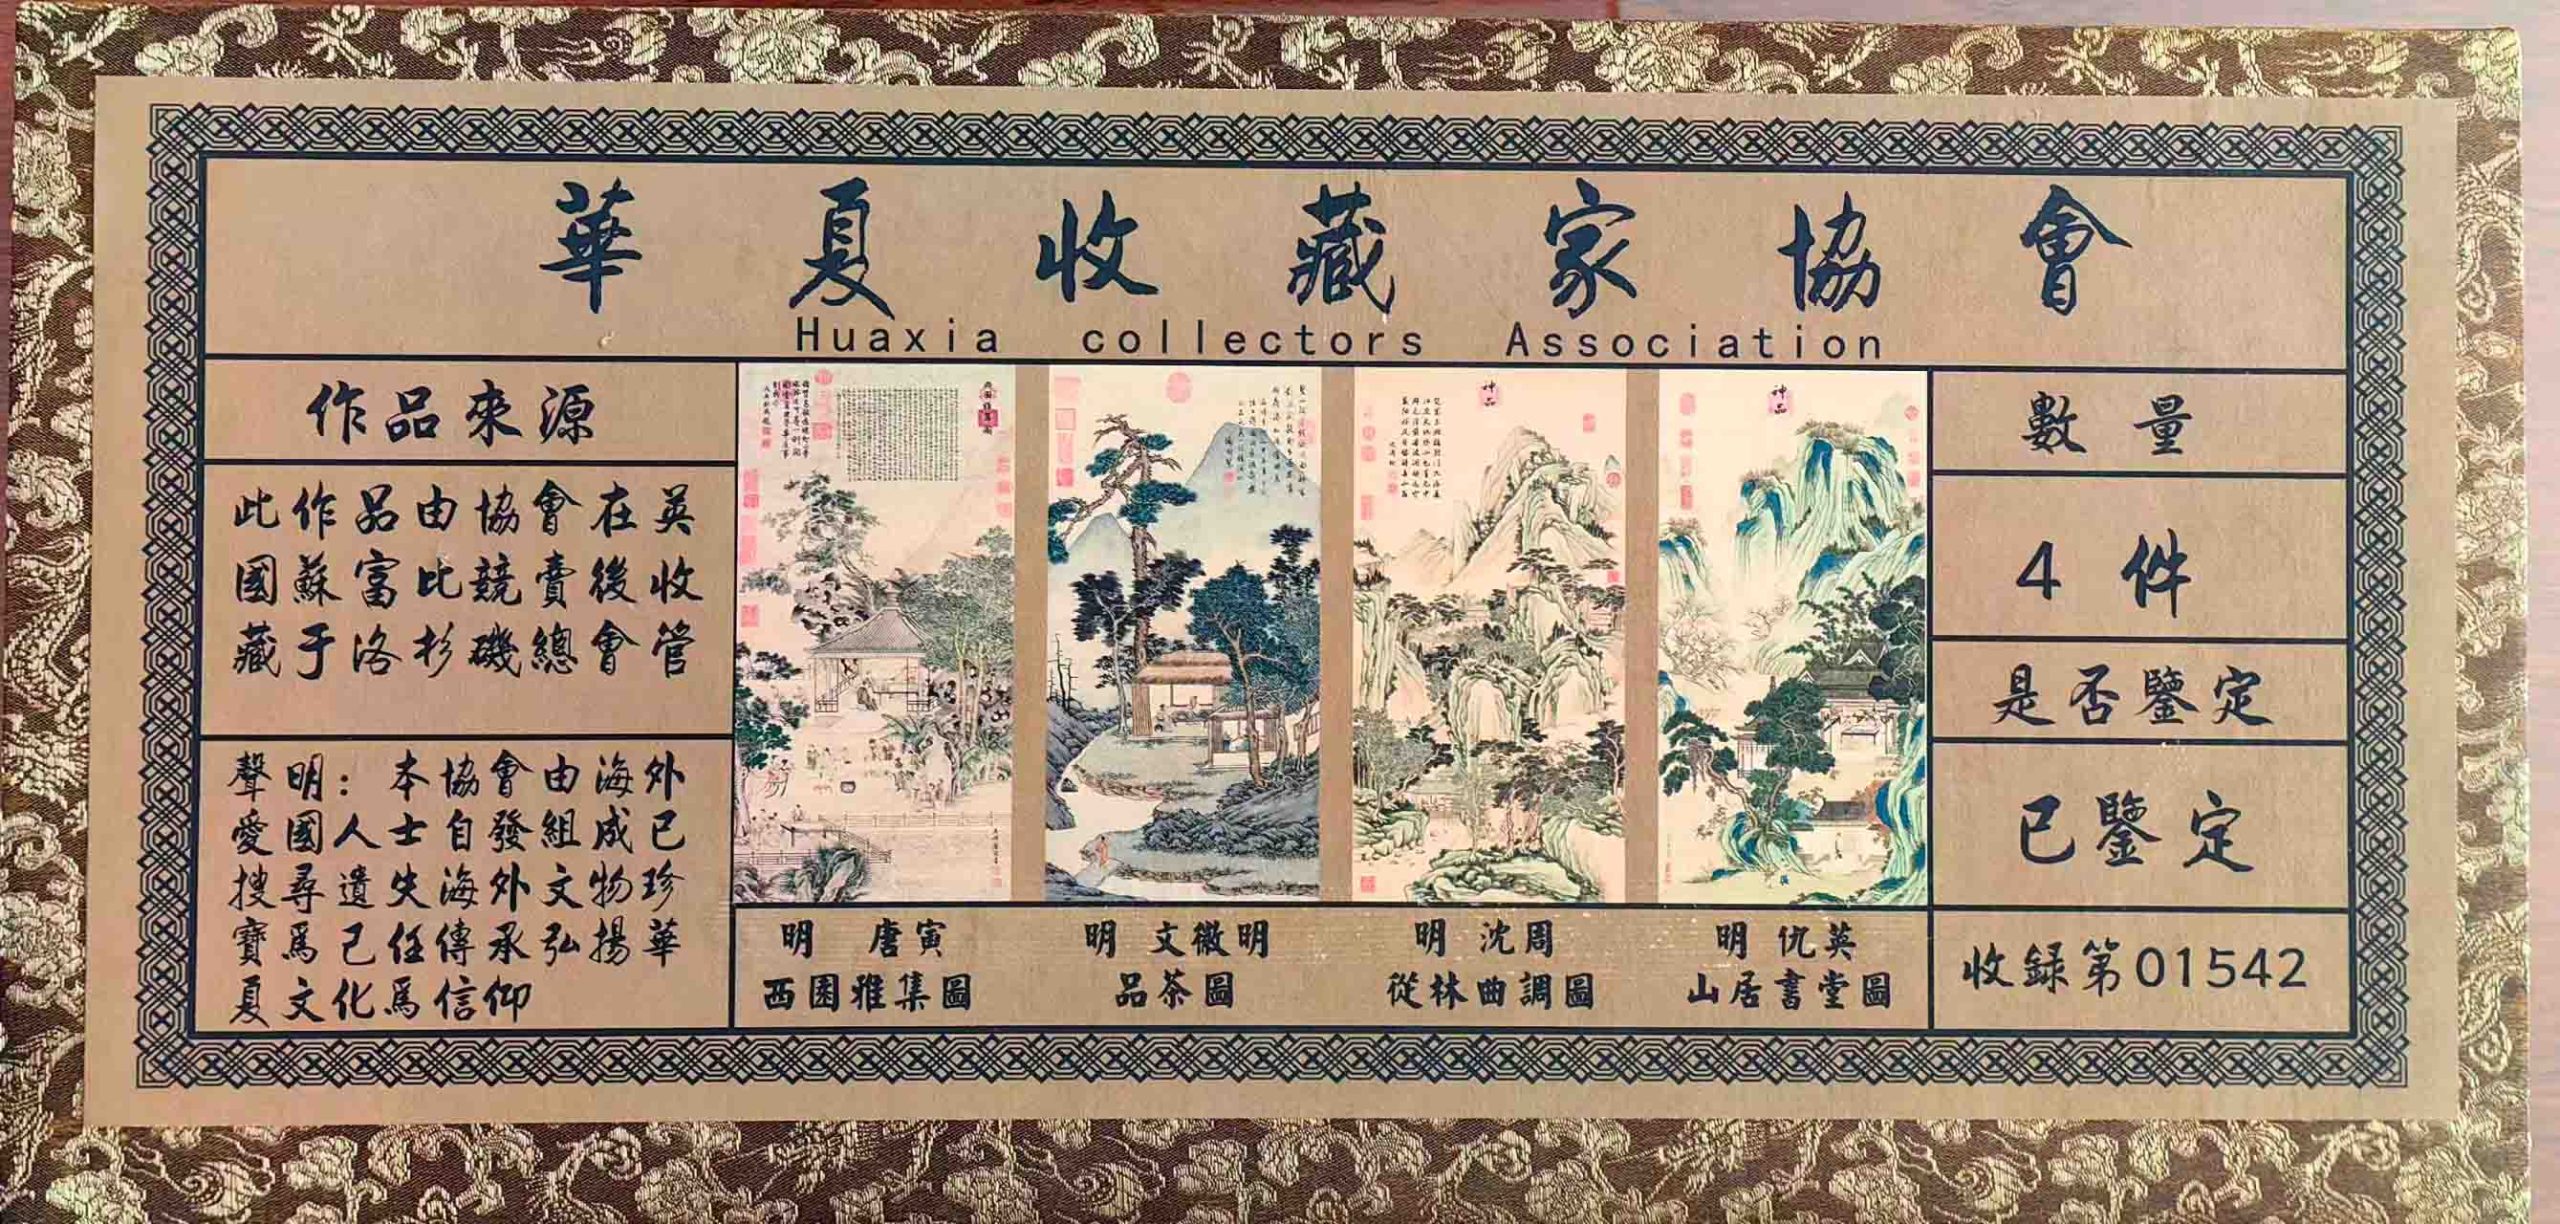 華夏收藏家協會
Huaxia collectors Association
作品來源
此作品由協會在英
國蘇富比競賣後收
藏于洛杉磯總會管
聲明：本協會由海外
愛國人士自發組成已
搜尋遺失海外文物珍
寶爲己任傳承弘揚華
夏文化爲信仰
神品
神品
明 唐寅
西園雅集圖
明 文徵明
品茶圖
明 沈周
從林曲調圖
明 仇英
山居書堂圖
數量
4件
是否鑒定
已鑒定
收録第01542